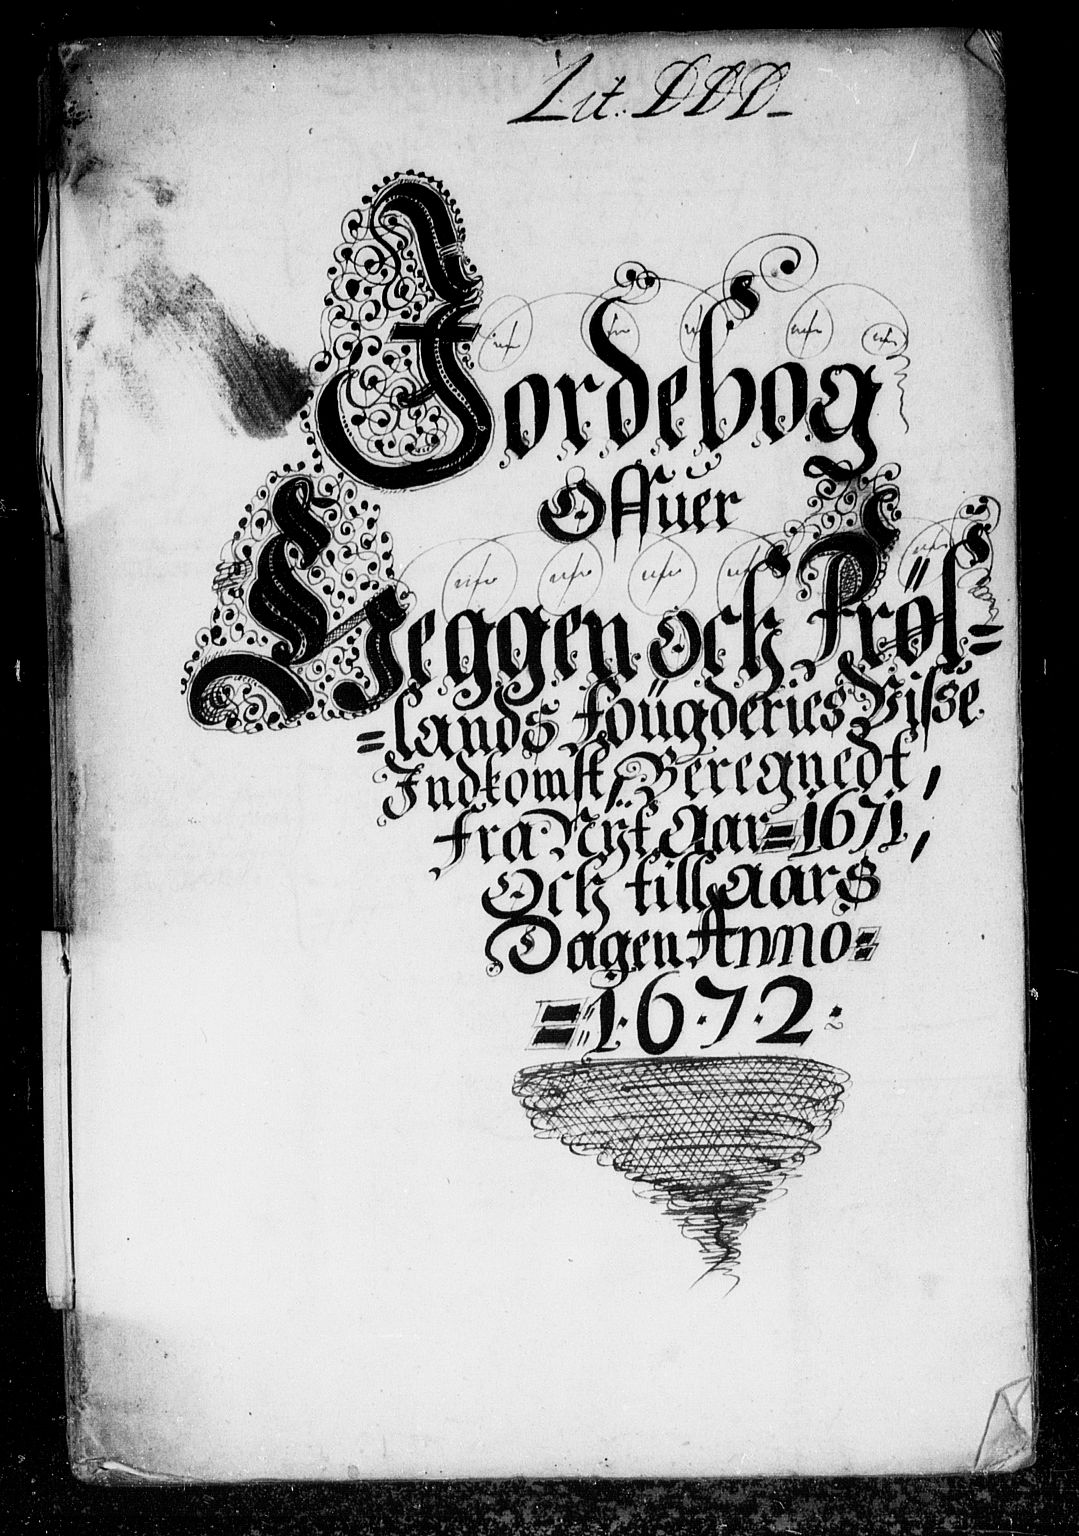 Lit: DDD
Jordebog
Offuer
Heggen och Frøl=
=lands fougderies Visse
Indkomst, Beregnedt,
fra Nÿt Aar =1671,
Och till Aars
Dagen Anno=
=1·6·7·2·